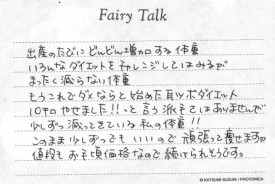 Fairy Talk
出産のたびにどんどん増加する体重
いろんなダイエットをチャレンジしてはみるが
まったく減らない体重
もうこれでダメならと始めた耳ツボダイエット
10キロやせました!!っと言う派手さはありませんが
少しずつ減ってきている私の体重!!
このまま少しずつでもいいので頑張って痩せます。
値段もお手頃価格なので続けられそうです。
© KATSUMI SUZUKI / PHOTONICA